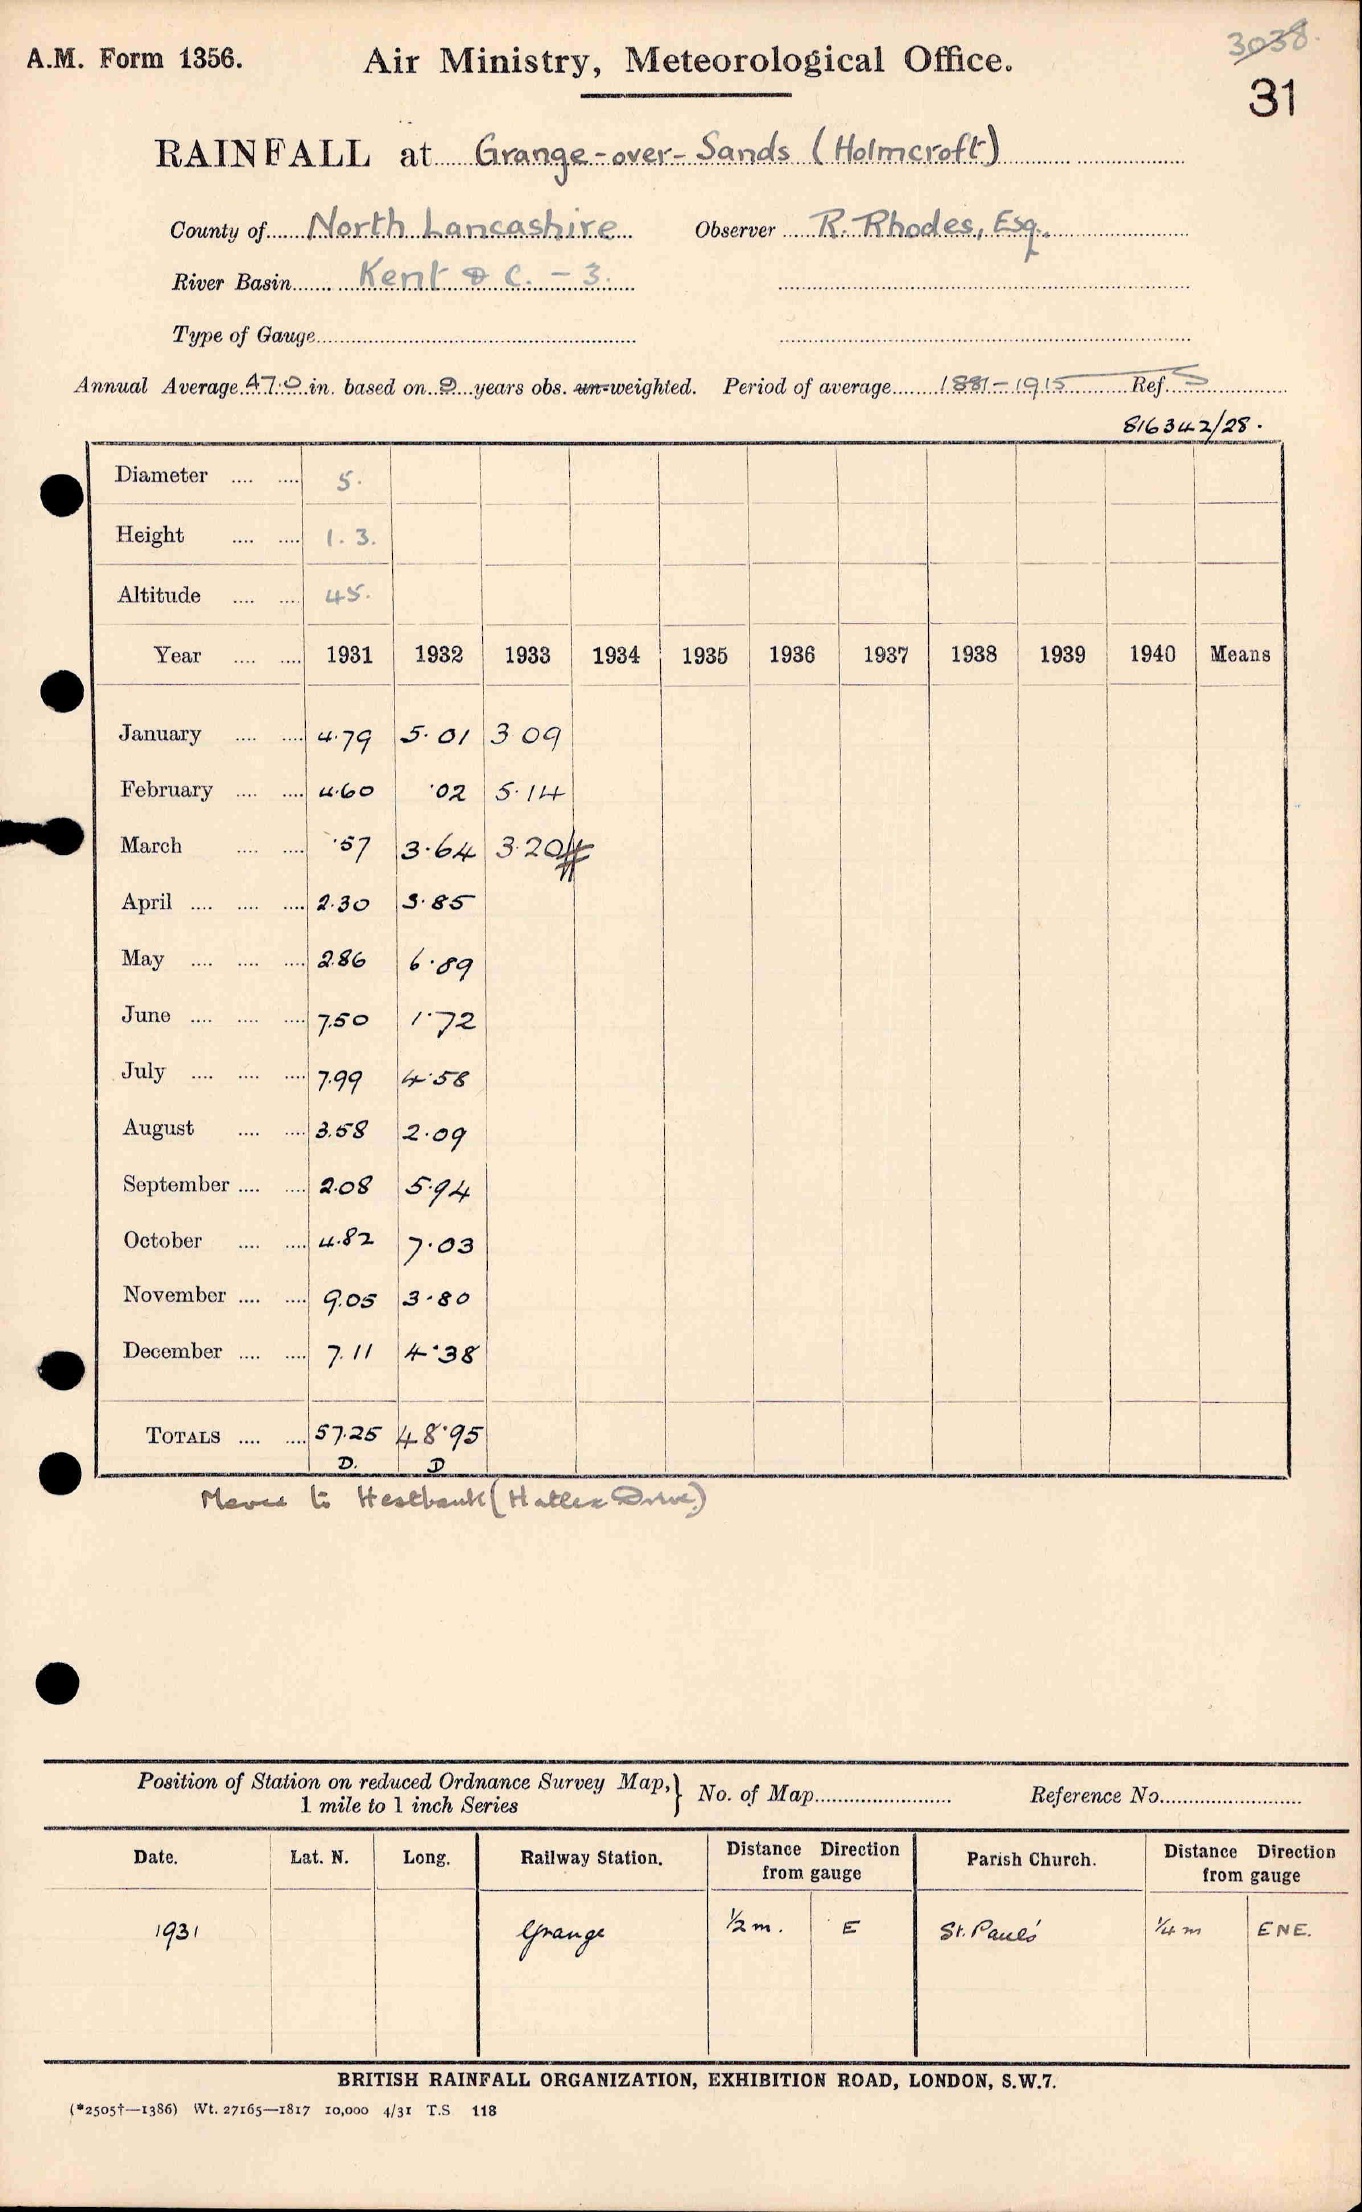 3038.
A.M. Form 1356. Air Ministry, Meteorological Office.
31
RAINFALL at Grange-over-Sands (Holmcroft)
County of North Lancashire Observer R. Rhodes, Esq.
River Basin Kent & C. – 3.
Type of Gauge
Annual Average 47.0 in. based on 9 years obs. un-weighted. Period of average 1881–1915 Ref. S
816342/28.
Diameter 5.
Height 1.3.
Altitude 45.
Year 1931 1932 1933 1934 1935 1936 1937 1938 1939 1940 Means
January 4.79 5.01 3 09
February 4.60 .02 5.14
March .57 3.64 3.20#
April 2.30 3.85
May 2.86 6.89
June 7.50 1.72
July 7.99 4.58
August 3.58 2.09
September 2.08 5.94
October 4.82 7.03
November 9.05 3.80
December 7.11 4.38
TOTALS 57.25 48.95
D. D
to Hestbank (Hatlex Drive)
Position of Station on reduced Ordnance Survey Map,} No. of Map Reference No.
1 mile to 1 inch Series
Date. Lat. N. Long. Railway Station. Distance Direction from gauge Parish Church. Distance Direction from gauge
1931 Grange ½ m. E St. Paul's ¼ m ENE.
BRITISH RAINFALL ORGANIZATION, EXHIBITION ROAD, LONDON, S.W.7.
(*2505†—1386) Wt. 27165—1817 10,000 4/31 T.S 118